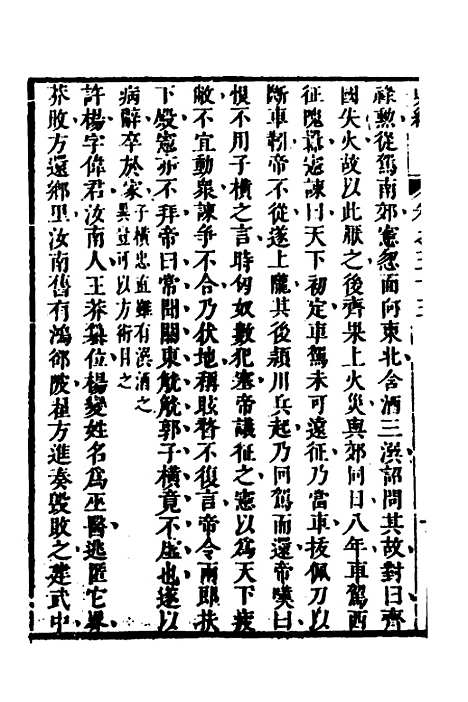 祿勳從駕南郊憲忽面向東北含酒三潠詔問其故對曰齊
國失火故以此厭之後齊果上火災與郊同日八年車駕西
征隗囂憲諫曰天下初定車駕未可遠征乃當車拔佩刀以
斷車靷帝不從遂上隴其後潁川兵起乃囘駕而還帝嘆曰
恨不用子橫之言時匈奴數犯塞帝議征之憲以爲天下疲
敝不宜動衆諫爭不合乃伏地稱眩瞀不復言帝令兩郎扶
下殿憲亦不拜帝曰常聞關東觥觥郭子橫竟不虛也遂以
病辭卒於家子橫忠直雖有潠酒之
異豈可以方術目之
許楊字偉君汝南人王莽簒位楊變姓名爲巫醫逃匿它界
莽敗方還鄉里汝南舊有鴻郤陂翟方進奏毀敗之建武中